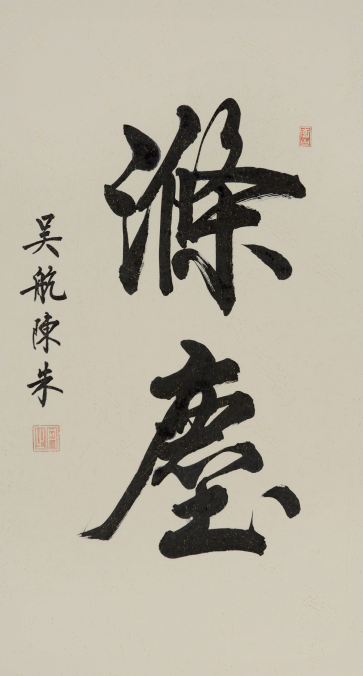 滌塵
吴航陳朱